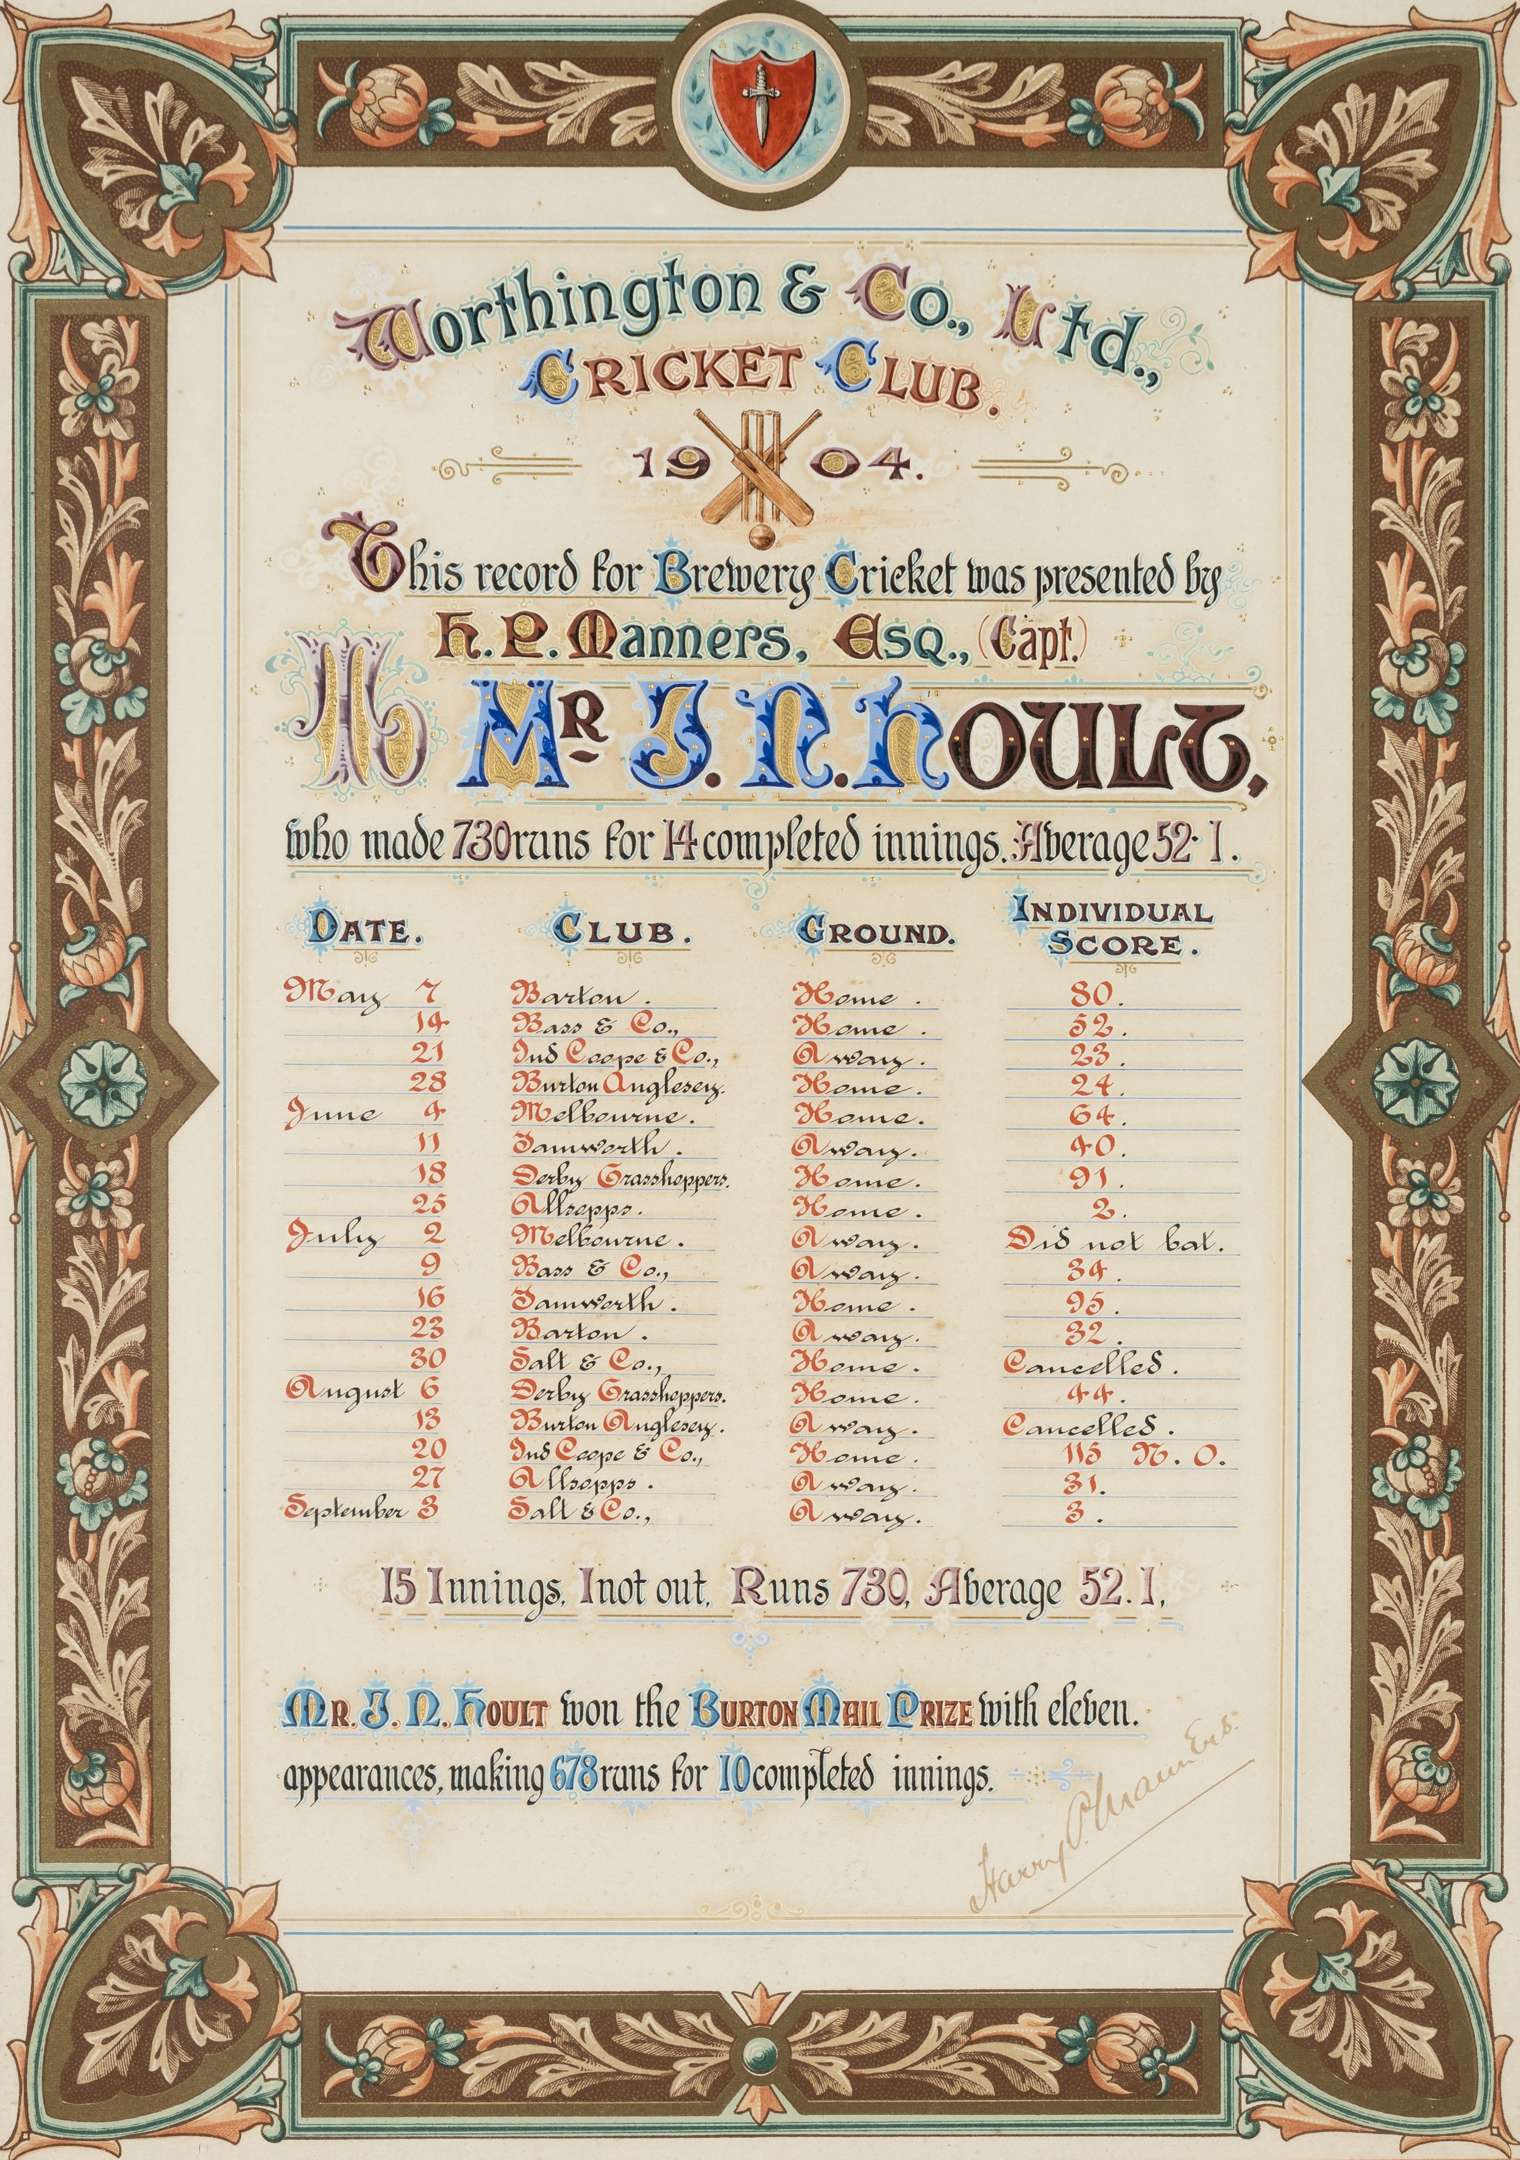 Worthington & Co., Ltd.,
CRICKET CLUB.
1904.
This record for Brewery Cricket was presented by
H. P. Manners, Esq., (Capt.)
To MR. J. N. HOULT,
who made 730 runs for 14 completed innings. Average 52·1.
DATE. CLUB. GROUND. INDIVIDUAL SCORE.
May 7 Barton. Home. 80.
14 Bass & Co., Home. 52.
21 Ind Coope & Co., Away. 23.
28 Burton Anglesey. Home. 24.
June 4 Melbourne. Home. 64.
11 Tamworth. Away. 40.
18 Derby Grasshoppers. Home. 91.
25 Allsopps. Home. 2.
July 2 Melbourne. Away. Did not bat.
9 Bass & Co., Away. 34.
16 Tamworth. Home. 95.
23 Barton. Away. 32.
30 Salt & Co., Home. Cancelled.
August 6 Derby Grasshoppers. Home. 44.
13 Burton Anglesey. Away. Cancelled.
20 Ind Coope & Co., Home. 115 N. O.
27 Allsopps. Away. 31.
September 3 Salt & Co., Away. 3.
15 Innings, 1 not out, Runs 730, Average 52.1,
MR. J. N. HOULT won the BURTON MAIL PRIZE with eleven.
appearances, making 678 runs for 10 completed innings.
Harry P. Manners.